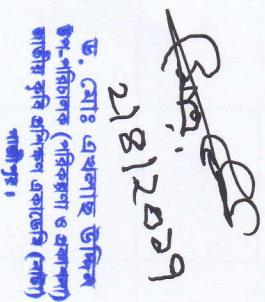 ২।৪।২০১৭
ড. মোঃ এখলাছ উদ্দিন
উপ-পরিচালক (পরিকল্পনা ও প্রকাশনা)
জাতীয় কৃষি প্রশিক্ষণ একাডেমি (নাটা)
গাজীপুর।